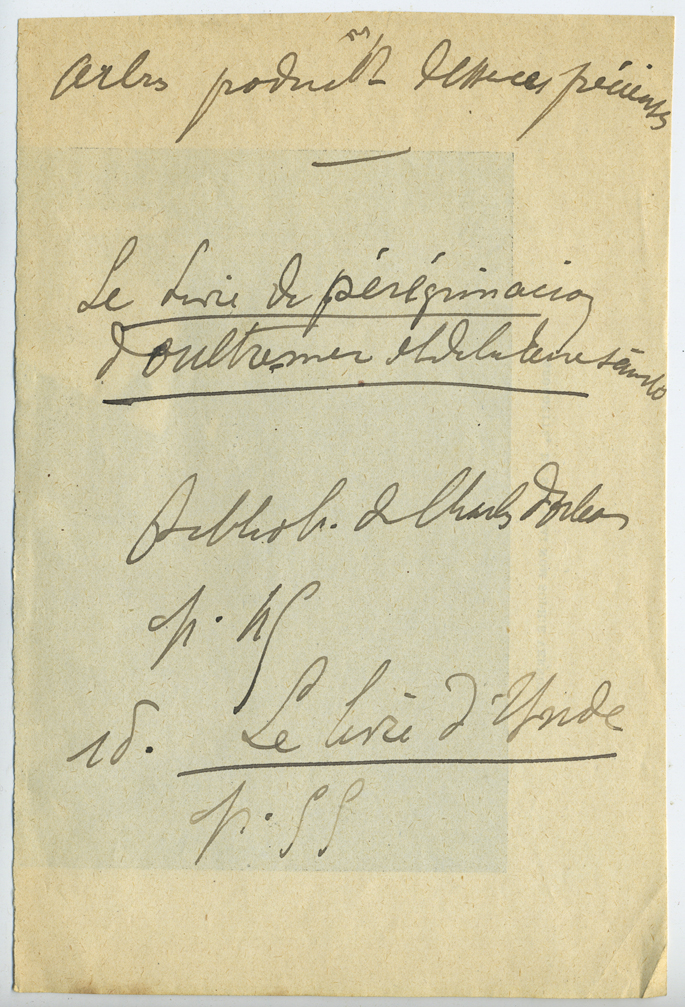 Arbres produisant d'essences précieuses
Le Livre de pérégrinacion
d'oultremer et de la terre saincte
Biblioth. de Charles d'Orléans
p. 45
id. Le livre d'Ynde
p. 55